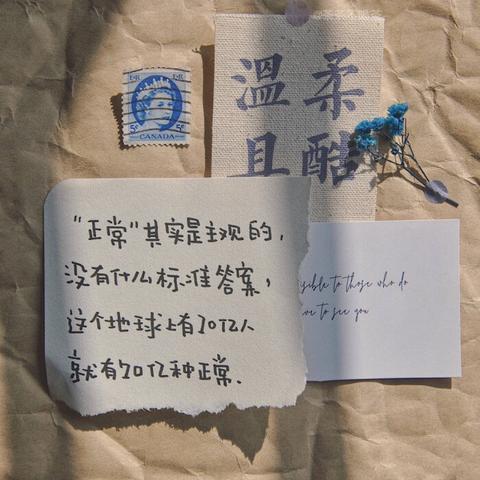 溫柔
且酷
E R E R
5¢ 5¢
CANADA
"正常"其实是主观的,
没有什么标准答案,
这个地球上有70亿人
就有70亿种正常.
to those who do
to see you